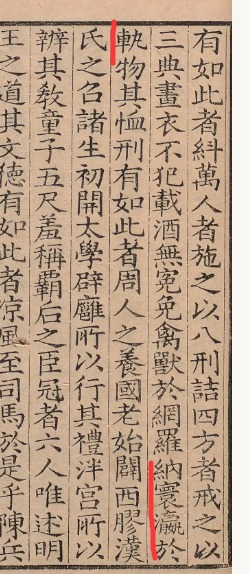 有如此者糾萬人者施之以八刑詰四方者戒之以
三典畫衣不犯載酒無冤免禽獸於網羅納寰瀛於
軌物其恤刑有如此者周人之養國老始闢西膠漢
氏之召諸生初開太學辟廱所以行其禮泮宮所以
辨其教童子五尺羞稱霸后之臣冠者六人唯述明
王之道其文德有如此者涼風至司馬於是乎陳兵